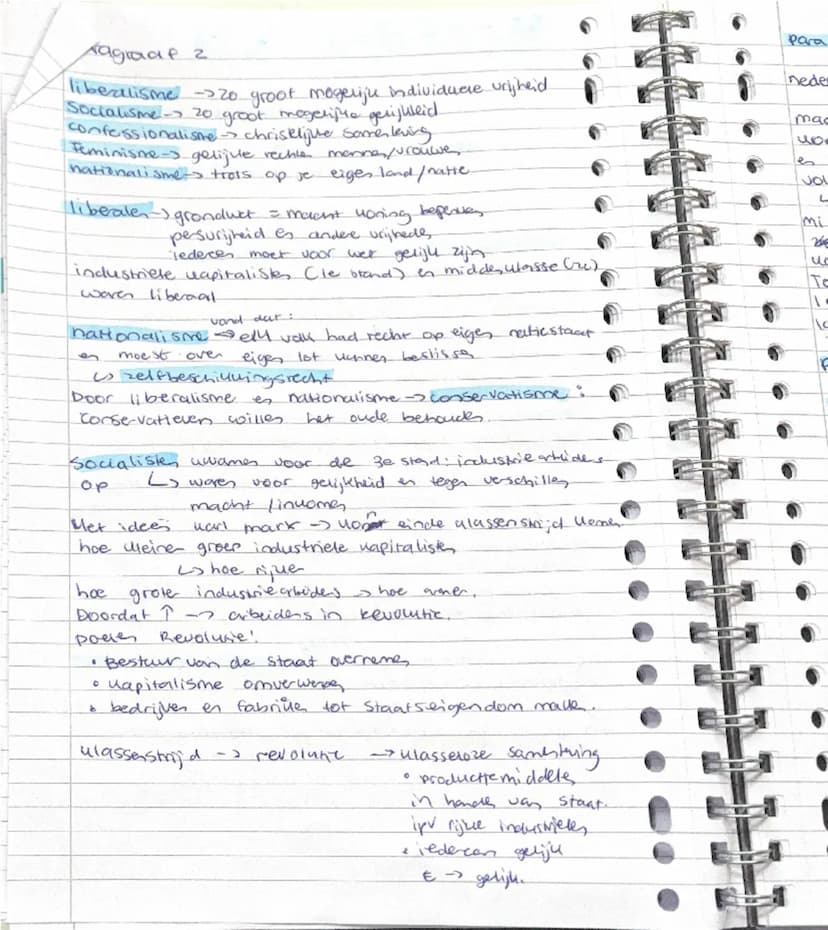 ragraaf 2
liberalisme → zo groot mogelijk individuele vrijheid
Socialisme → zo groot mogelijke gelijkheid
confessionalisme → christelijke samenleving
Feminisme → gelijke rechten mannen/vrouwen
nationalisme → trots op je eigen land/natie
liberalen → grondwet = macht koning beperken
persvrijheid en andere vrijheden
iedereen moet voor wet gelijk zijn
industriële kapitalisten (1e stand) en middenklasse (2e)
waren liberaal
vond dat:
nationalisme → elk volk had recht op eigen natiestaat
en moest over eigen lot kunnen beslissen
↳ zelfbeschikkingsrecht
Door liberalisme en nationalisme → conservatisme:
conservatieven willen het oude behouden.
Socialisten kwamen voor de 3e stand: industriearbeiders
op ↳ waren voor gelijkheid en tegen verschillen
macht / inkomen
Met ideeën karl marx → einde klassenstrijd
hoe kleiner groep industriële kapitalisten
↳ hoe rijker
hoe groter industriearbeiders → hoe armer.
Doordat ↑ → arbeiders in Revolutie.
Doelen Revolutie:
• Bestuur van de staat overnemen
• kapitalisme omverwerpen
• bedrijven en fabrieken tot Staatseigendom maken.
klassenstrijd → revolutie → klasseloze samenleving
• productiemiddelen
in handen van staat.
ipv rijke industriëlen
• iedereen gelijk
€ → gelijk.
para
nede